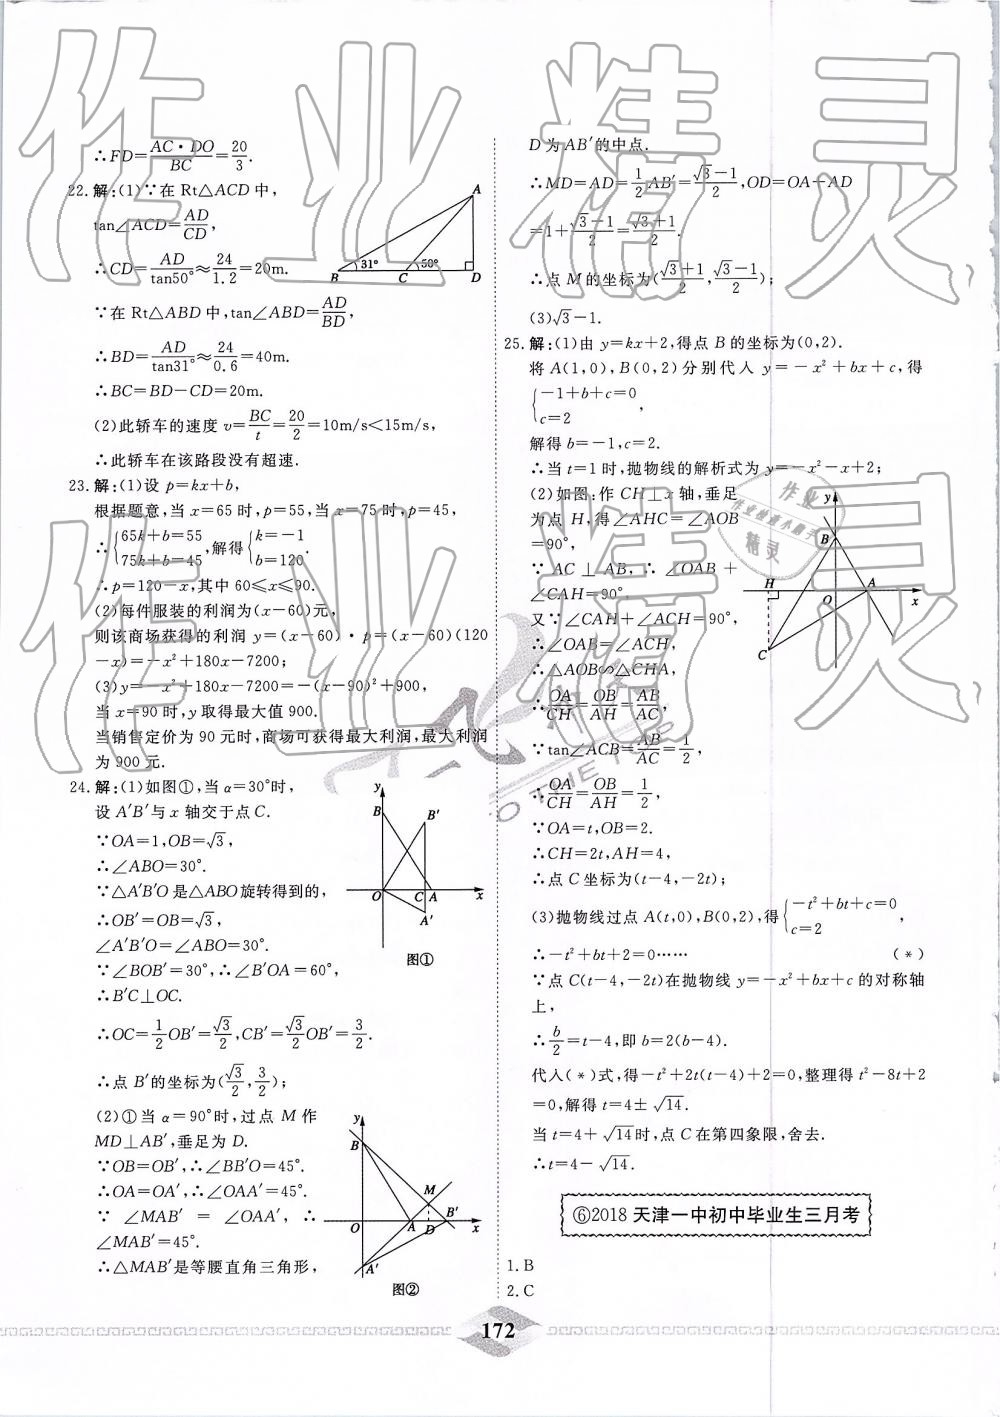 ∴FD=AC·DO/BC=20/3.
22.解:(1)∵在Rt△ACD中,
tan∠ACD=AD/CD,
∴CD=AD/tan50°≈24/1.2=20m.
∵在Rt△ABD中,tan∠ABD=AD/BD,
∴BD=AD/tan31°≈24/0.6=40m.
∴BC=BD-CD=20m.
(2)此轿车的速度v=BC/t=20/2=10m/s<15m/s,
∴此轿车在该路段没有超速.
A
31°
50°
B
C
D
23.解:(1)设p=kx+b,
根据题意,当x=65时,p=55,当x=75时,p=45,
∴{65k+b=55
75k+b=45,解得{k=-1
b=120.
∴p=120-x,其中60≤x≤90.
(2)每件服装的利润为(x-60)元,
则该商场获得的利润y=(x-60)·p=(x-60)(120
-x)=-x²+180x-7200;
(3)y=-x²+180x-7200=-(x-90)²+900,
当x=90时,y取得最大值900.
当销售定价为90元时,商场可获得最大利润,最大利润
为900元.
24.解:(1)如图①,当α=30°时,
设A′B′与x轴交于点C.
∵OA=1,OB=√3,
∴∠ABO=30°.
∵△A′B′O是△ABO旋转得到的,
∴OB′=OB=√3,
∠A′B′O=∠ABO=30°.
∵∠BOB′=30°,∴∠B′OA=60°,
∴B′C⊥OC.
∴OC=1/2OB′=√3/2,CB′=√3/2OB′=3/2.
∴点B′的坐标为(√3/2,3/2);
y
B
B′
O
C
A
x
A′
图①
(2)①当α=90°时,过点M作
MD⊥AB′,垂足为D.
∵OB=OB′,∴∠BB′O=45°.
∴OA=OA′,∴∠OAA′=45°.
∵∠MAB′=∠OAA′,∴
∠MAB′=45°.
∴△MAB′是等腰直角三角形,
y
B
M
B′
O
A
D
x
A′
图②
D为AB′的中点.
∴MD=AD=1/2AB′=(√3-1)/2,OD=OA+AD
=1+(√3-1)/2=(√3+1)/2.
∴点M的坐标为((√3+1)/2,(√3-1)/2);
(3)√3-1.
25.解:(1)由y=kx+2,得点B的坐标为(0,2).
将A(1,0),B(0,2)分别代入y=-x²+bx+c,得
{-1+b+c=0
c=2,
解得b=-1,c=2.
∴当t=1时,抛物线的解析式为y=-x²-x+2;
(2)如图:作CH⊥x轴,垂足
为点H,得∠AHC=∠AOB
=90°,
∵AC⊥AB,∴∠OAB+
∠CAH=90°,
又∵∠CAH+∠ACH=90°,
∴∠OAB=∠ACH,
∴△AOB∽△CHA,
∴OA/CH=OB/AH=AB/AC,
∵tan∠ACB=AB/AC=1/2,
∴OA/CH=OB/AH=1/2,
∵OA=t,OB=2.
∴CH=2t,AH=4,
∴点C坐标为(t-4,-2t);
y
B
H
O
A
x
C
(3)抛物线过点A(t,0),B(0,2),得{-t²+bt+c=0
c=2,
∴-t²+bt+2=0……(*)
∵点C(t-4,-2t)在抛物线y=-x²+bx+c的对称轴
上,
∴b/2=t-4,即b=2(b-4).
代入(*)式,得-t²+2t(t-4)+2=0,整理得t²-8t+2
=0,解得t=4±√14.
当t=4+√14时,点C在第四象限,舍去.
∴t=4-√14.
⑥2018天津一中初中毕业生三月考
1.B
2.C
172
作业精灵
作业精灵
作业
精灵